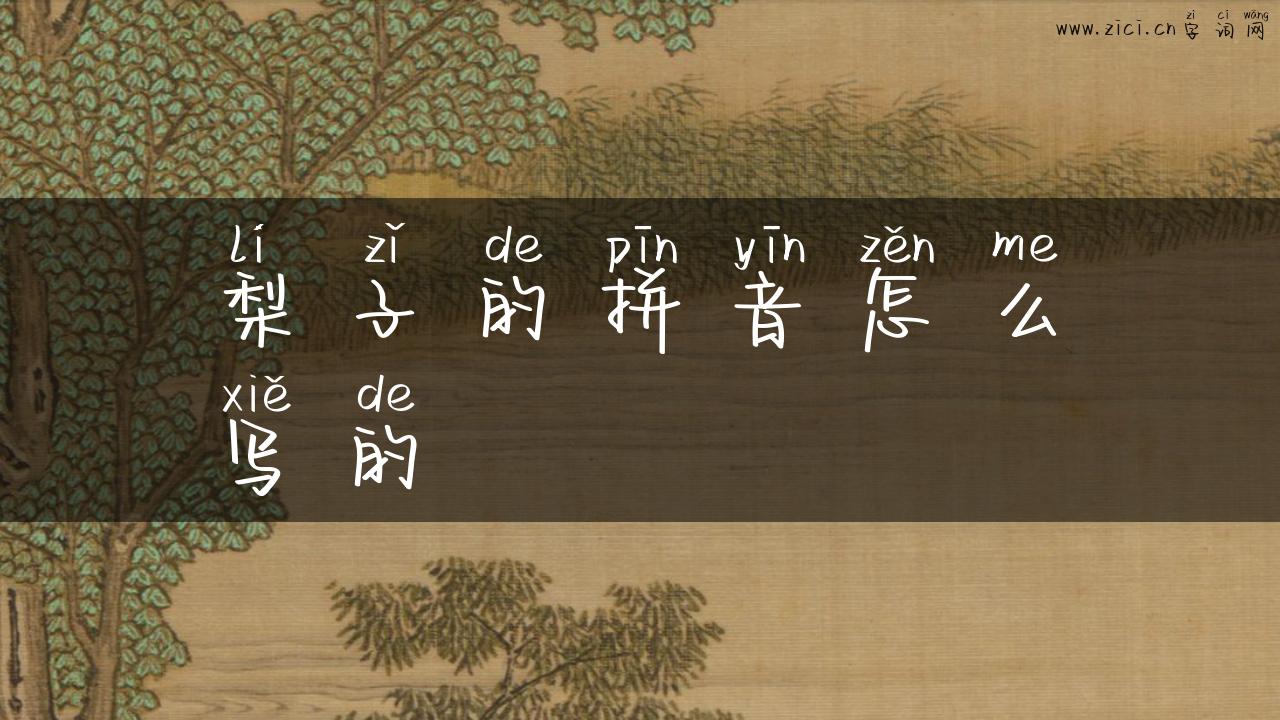 zì cí wǎng
www.zici.cn字词网
lí zǐ de pīn yīn zěn me
梨子的拼音怎么
xiě de
写的